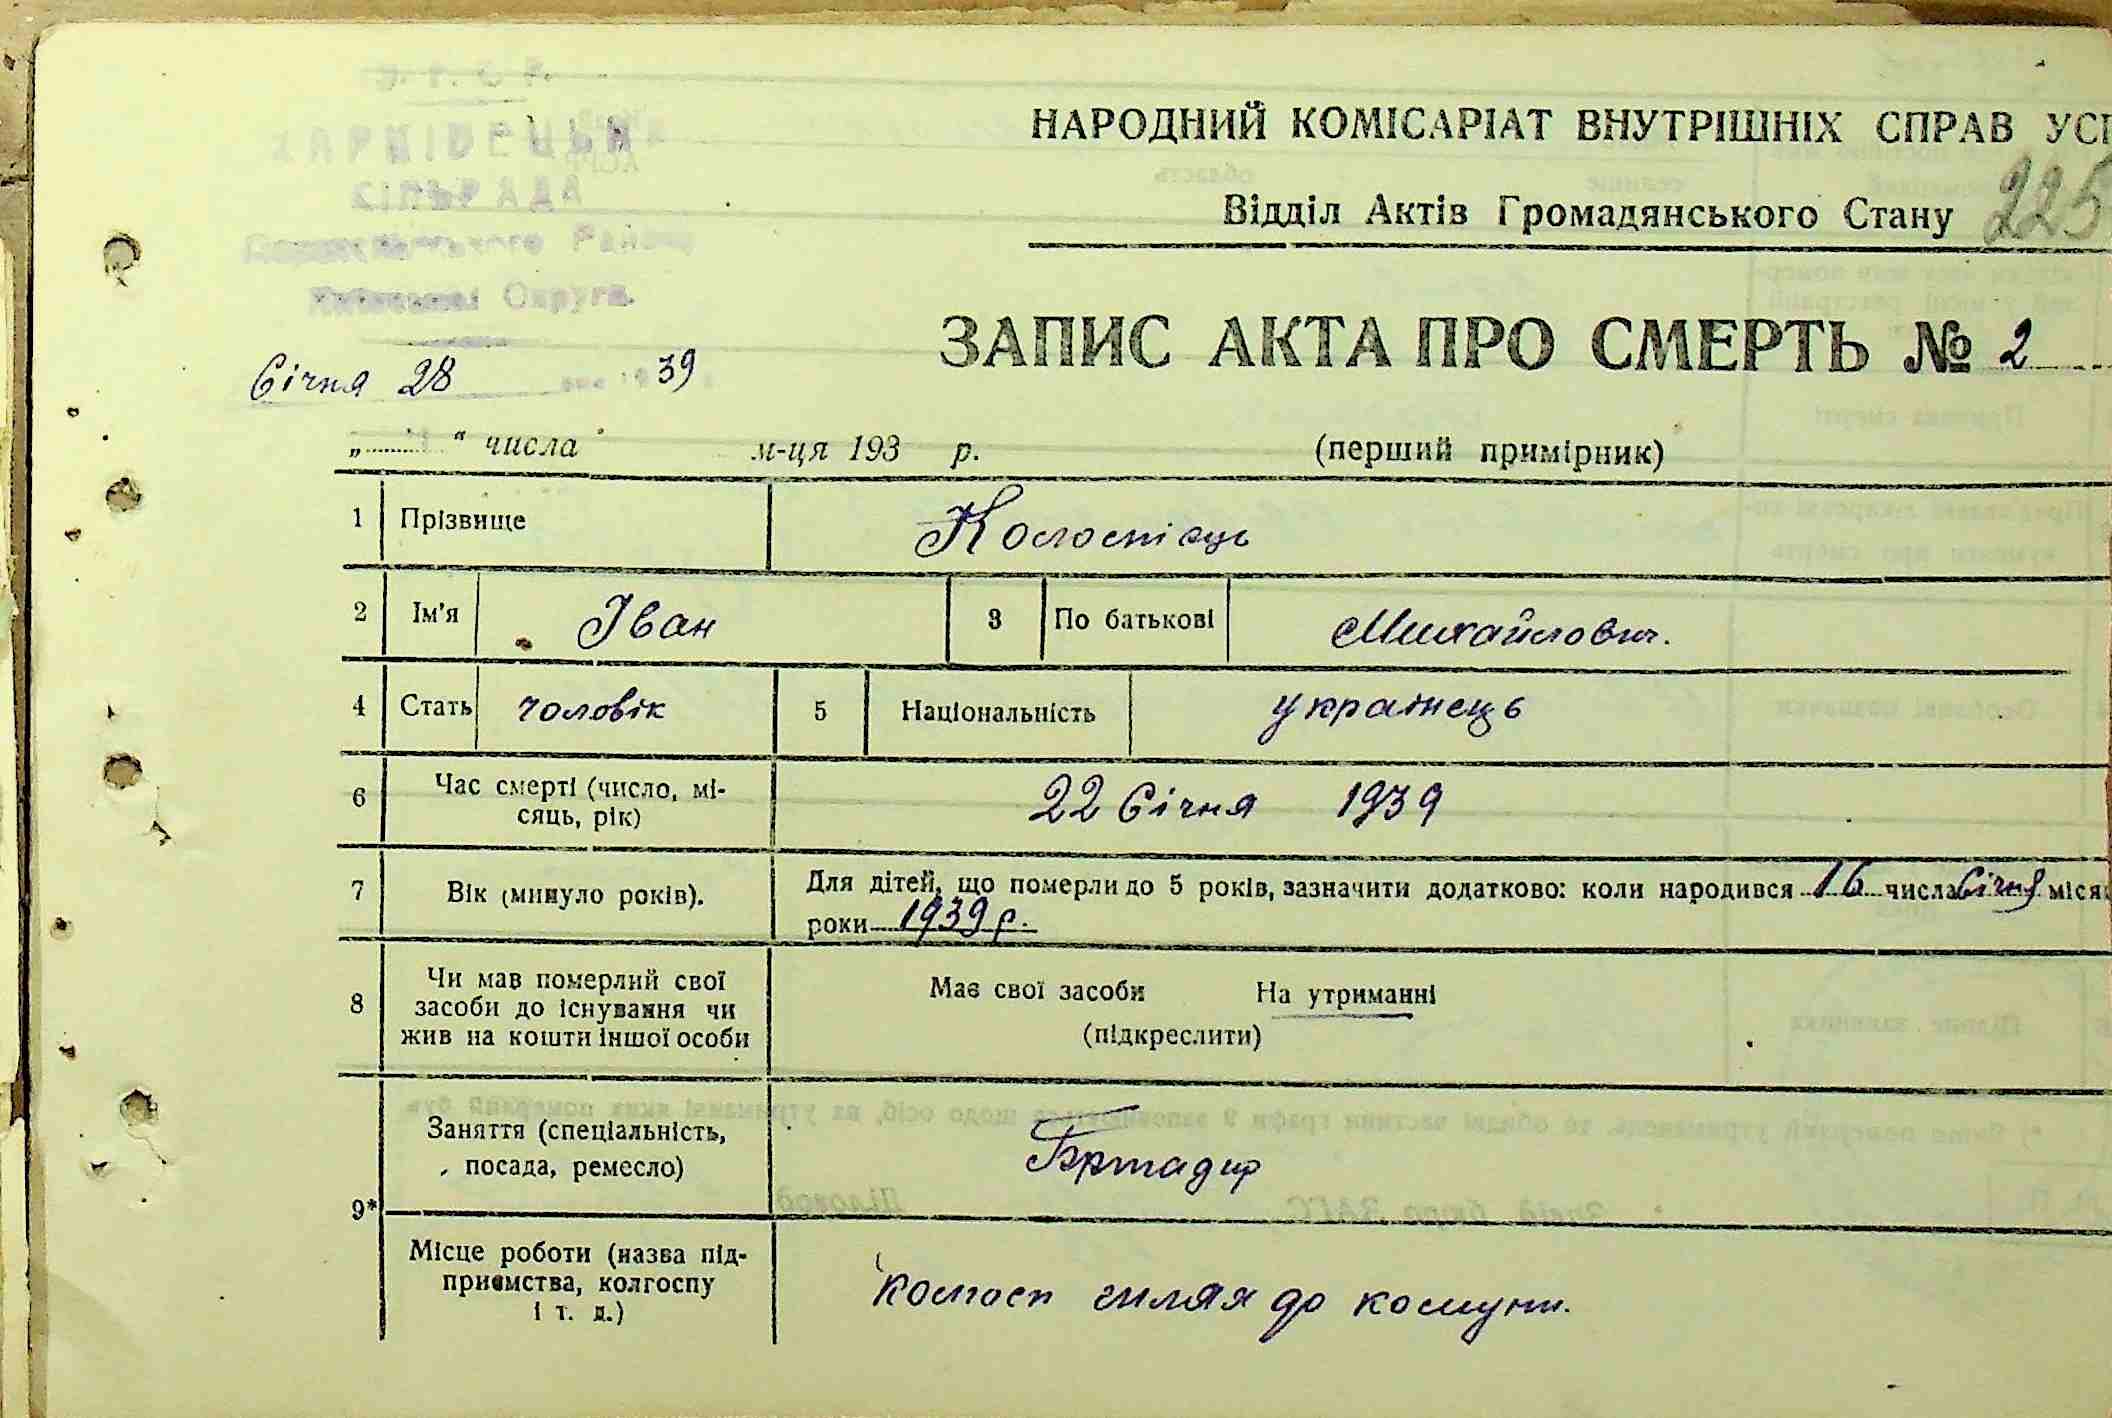 У. С. Р. Р.
ХАРКІВЕЦЬКА
СІЛЬРАДА
Району
Округи.
НАРОДНИЙ КОМІСАРІАТ ВНУТРІШНІХ СПРАВ УСР
Відділ Актів Громадянського Стану 225
ЗАПИС АКТА ПРО СМЕРТЬ № 2
Січня 28 39
„ “ числа м-ця 193 р. (перший примірник)
1 Прізвище Колостієць
2 Ім'я Іван 3 По батькові Михайлович.
4 Стать чоловік 5 Національність українець
6 Час смерті (число, мі-
сяць, рік) 22 Січня 1939
7 Вік (минуло років). Для дітей, що померли до 5 років, зазначити додатково: коли народився 16 числа Січня міся
роки 1939 р.
8 Чи мав померлий свої
засоби до існування чи
жив на кошти іншої особи
Має свої засоби На утриманні
(підкреслити)
9* Заняття (спеціальність,
посада, ремесло) Бригадир
Місце роботи (назва під-
приємства, колгоспу
і т. д.)
колгосп шлях до комуни.